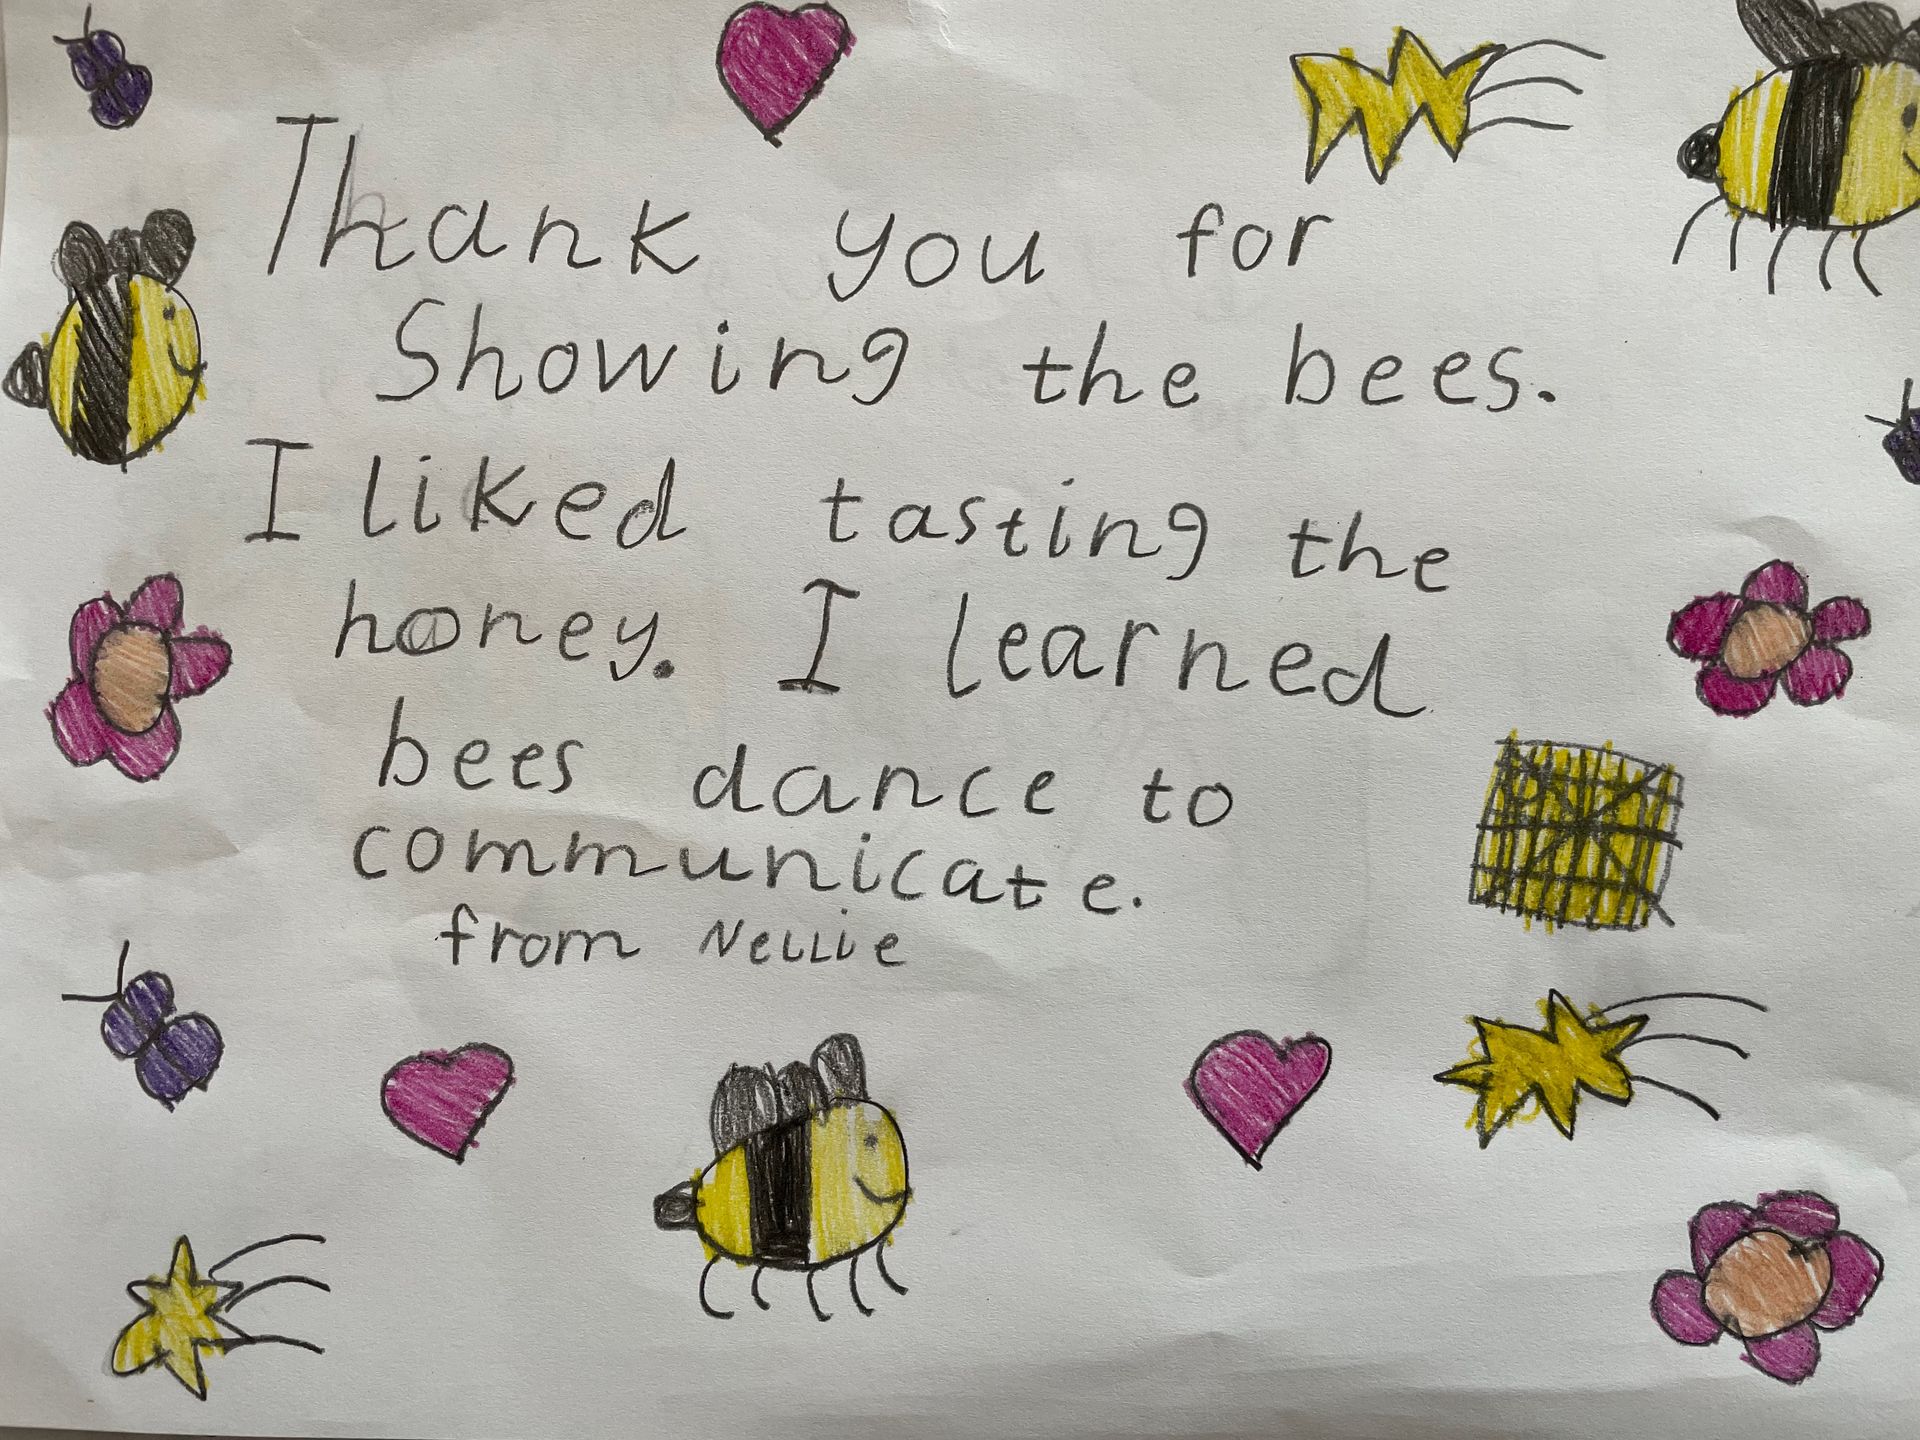 Thank you for
Showing the bees.
I liked tasting the
honey. I learned
bees dance to
communicate.
from Nellie